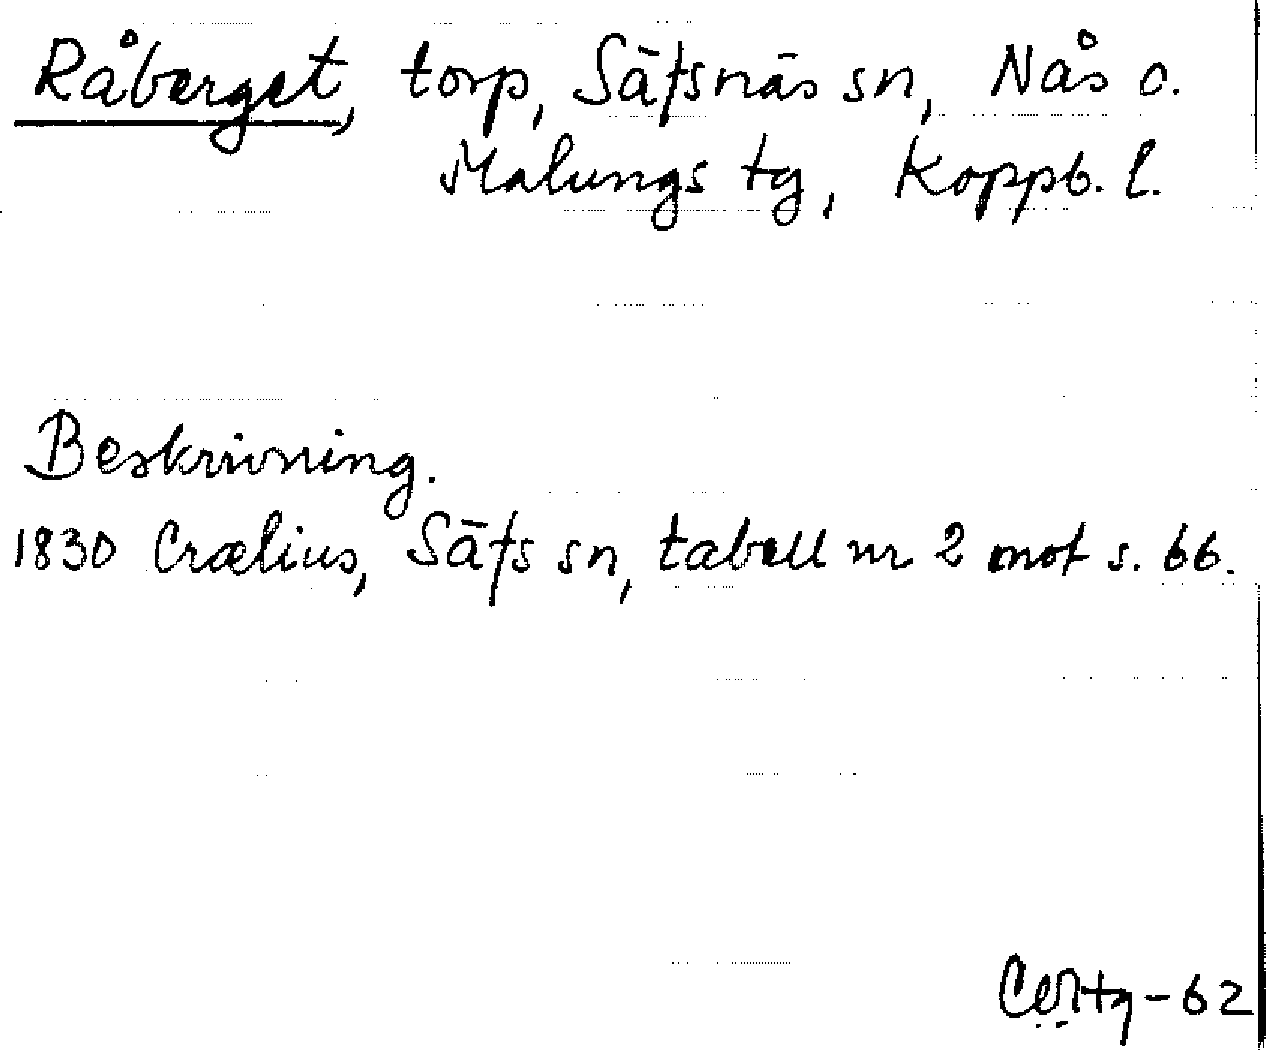 Råberget, torp, Säfsnäs sn, Nås o.
Malungs tg, Koppb. l.
Beskrivning.
1830 Crælius, Säfs sn, tabell nr 2 mot s. 66.
-62